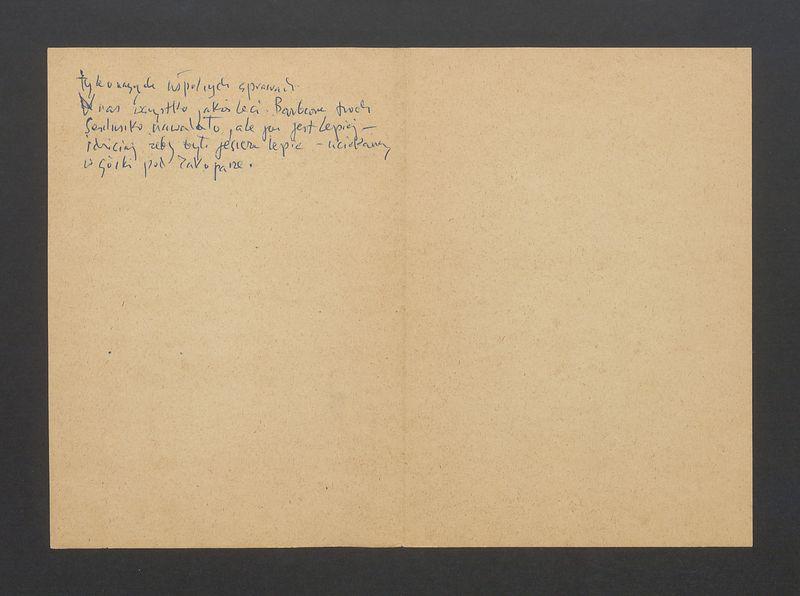 tylko naszych wspólnych sprawach.
U nas wszystko jakoś leci. Barbarze troch
serduszko nawalało, ale już jest lepiej –
i żeby było jeszcze lepie – uciekamy
w górki pod Zakopane.